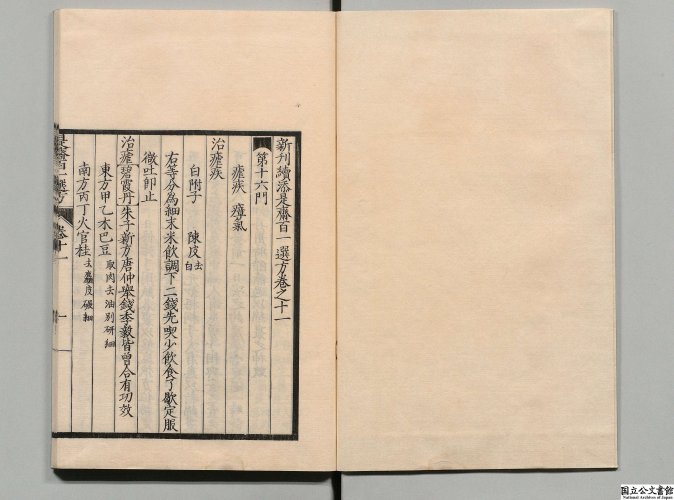 新刊續添是齋百一選方卷之十一
第十六門
瘧疾 瘴氣
治瘧疾
白附子 陳皮去白
右等分為細末米飲調下二錢先喫少飲食了歇定服
微吐即止
治瘧碧霞丹朱子新方唐仲舉錢季毅皆曾合有功效
東方甲乙木巴豆取肉去油別研細
南方丙丁火官桂去麤皮碾細
是齋百一選方 卷十一 一
国立公文書館
National Archives of Japan